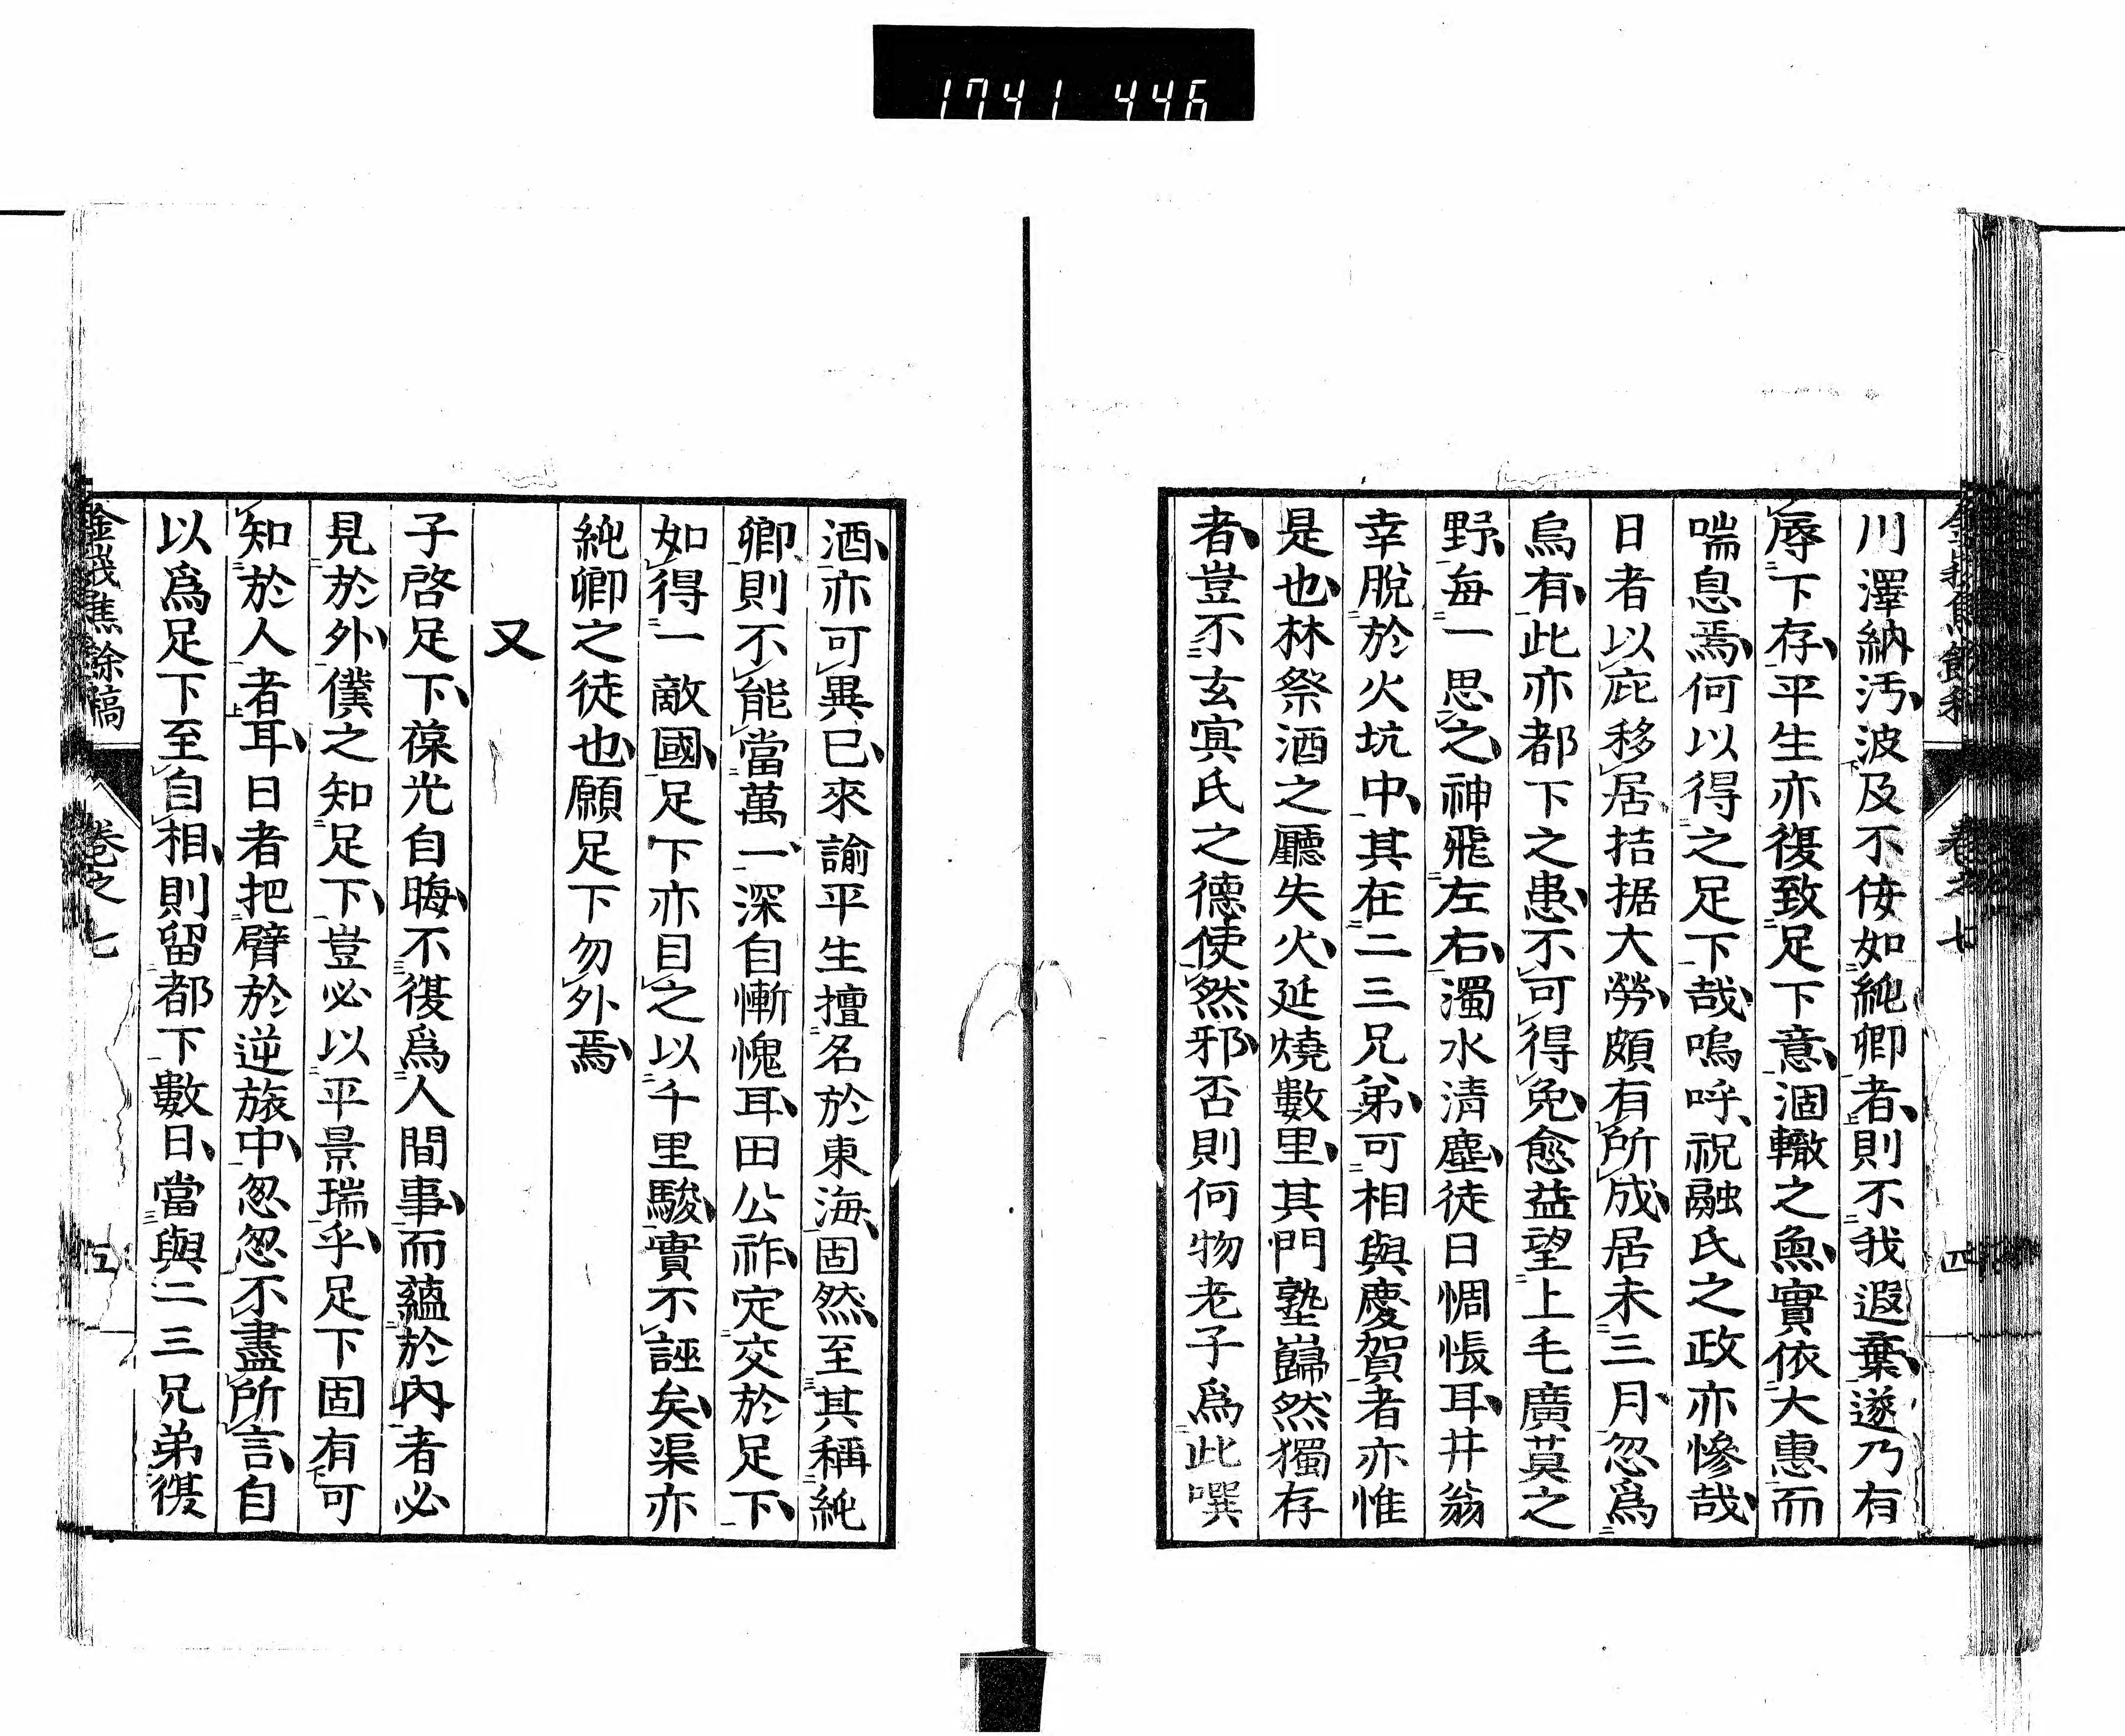 1741 446
川澤納汚波及不侫如純卿者則不我遐棄遂乃有
辱下存平生亦復致足下意涸轍之魚實依大惠而
喘息焉何以得之足下哉嗚呼祝融氏之政亦慘哉
日者以庇移居拮据大勞頗有所成居未三月忽爲
烏有此亦都下之患不可得免愈益望上毛廣莫之
野每一思之神飛左右濁水清塵徒日惆悵耳井翁
幸脫於火坑中其在二三兄弟可相與慶賀者亦惟
是也林祭酒之廳失火延燒數里其門塾巋然獨存
者豈不玄寞氏之德使然邪否則何物老子爲此噀
卷之七
四
酒亦可異已來諭平生擅名於東海固然至其稱純
卿則不能當萬一深自慚愧耳田公祚定交於足下
如得一敵國足下亦目之以千里駿實不誣矣渠亦
純卿之徒也願足下勿外焉
又
子啓足下葆光自晦不復爲人間事而蘊於內者必
見於外僕之知足下豈必以平景瑞乎足下固有可
知於人者耳日者把臂於逆旅中怱怱不盡所言自
以爲足下至自相則留都下數日當與二三兄弟復
金峩焦餘稿
卷之七
五